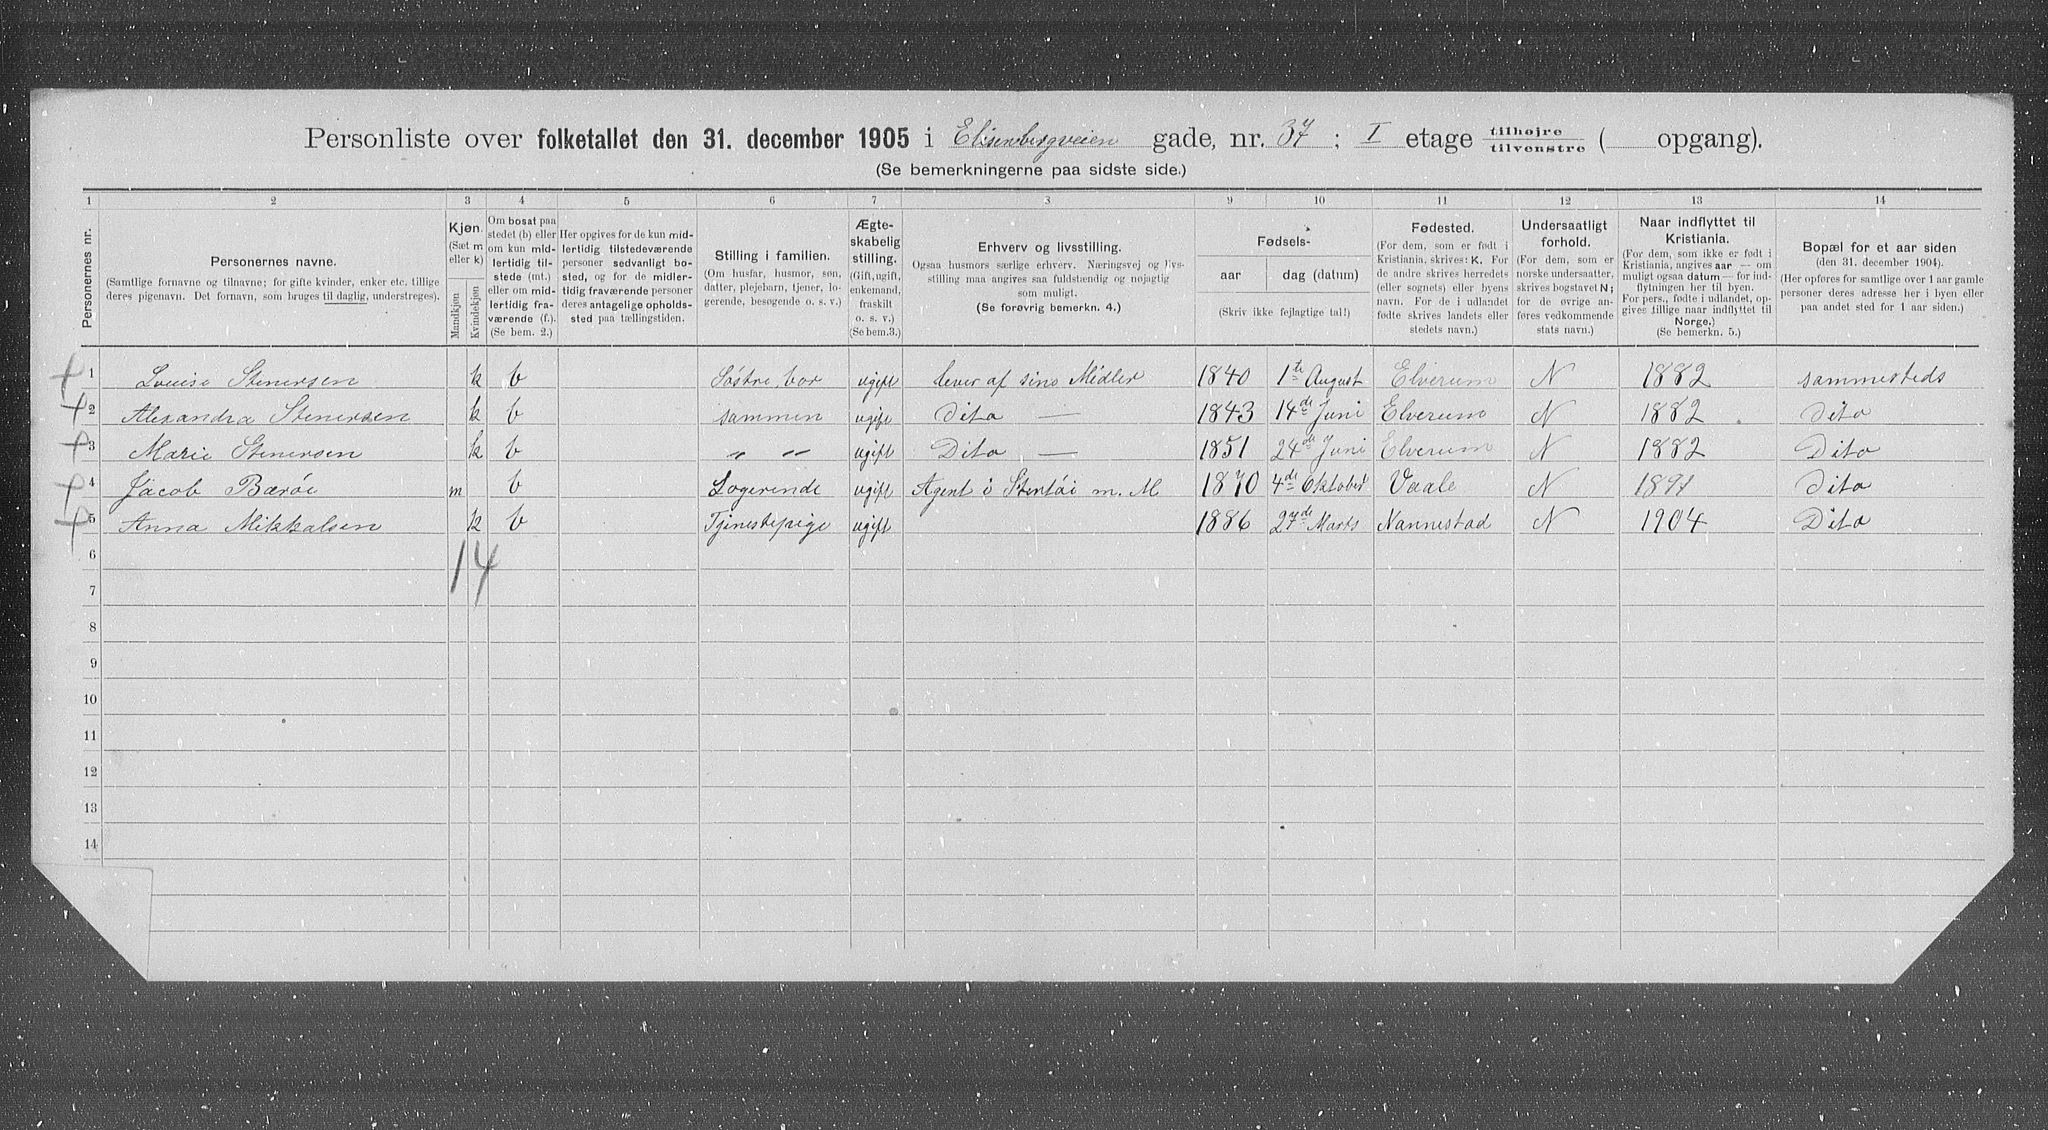 Personliste over folketallet den 31. december 1905 i Elisenbergveien gade, nr. 37 ; I etage tilhøjre tilvenstre ( opgang).
(Se bemerkningerne paa sidste side.)
1 2 3 4 5 6 7 3 9 10 11 12 13 14
Personernes nr.
Personernes navne.
(Samtlige fornavne og tilnavne; for gifte kvinder, enker etc. tillige
deres pigenavn. Det fornavn, som bruges til daglig, understreges).
Kjøn.
(Sæt m
eller k)
Mandkjøn
Kvindekjøn
Om bosat paa
stedet (b) eller
om kun mid-
lertidig til-
stede (mt.)
eller om mid-
lertidig fra-
værende (f.).
(Se bem. 2.)
Her opgives for de kun mid-
lertidig tilstedeværende
personer sedvanligt bo-
sted, og for de midler-
tidig fraværende personer
deres antagelige opholds-
sted paa tællingstiden.
Stilling i familien.
(Om husfar, husmor, søn,
datter, plejebarn, tjener, lo-
gerende, besøgende o. s. v.)
Ægte-
skabelig
stilling.
(Gift, ugift,
enkemand,
fraskilt
o. s. v.)
(Se bem.3.)
Erhverv og livsstilling.
Ogsaa husmors særlige erhverv. Næringsvej og livs-
stilling maa angives saa fuldstændig og nøjagtig
som muligt.
(Se forøvrig bemerkn. 4.)
Fødsels-
aar dag (datum)
(Skriv ikke fejlagtige tal!)
Fødested.
(For dem, som er født i
Kristiania, skrives: K. For
de andre skrives herredets
(eller sognets) eller byens
navn. For de i udlandet
fødte skrives landets eller
stedets navn.)
Undersaatligt
forhold.
(For dem, som er
norske undersaatter,
skrives bogstavet N;
for de øvrige an-
føres vedkommende
stats navn.)
Naar indflyttet til
Kristiania.
(For dem, som ikke er født i
Kristiania, angives aar — om
muligt ogsaa datum — for ind-
flytningen her til byen.
For pers., fødte i udlandet, op-
gives tillige naar indflyttet til
Norge.)
(Se bemerkn. 5.)
Bopæl for et aar siden
(den 31. december 1904).
(Her opføres for samtlige over 1 aar gamle
personer deres adresse her i byen eller
paa andet sted for 1 aar siden.)
1 Louise Stenersen k b Søstre, bor ugift lever af sine Midler 1840 1te August Elverum N 1882 sammesteds
2 Alexandra Stenersen k b sammen ugift Dito — 1843 14de Juni Elverum N 1882 Dito
3 Marie Stenersen k b " " ugift Dito — 1851 24de Juni Elverum N 1882 Dito
4 Jacob Barøe m b Logerende ugift Agent i Stentøi m. M 1870 4de Oktober Vaale N 1891 Dito
5 Anna Mikkalsen k b Tjenestepige ugift 1886 27de Marts Nannestad N 1904 Dito
6
1 4
7
8
9
10
11
12
13
14